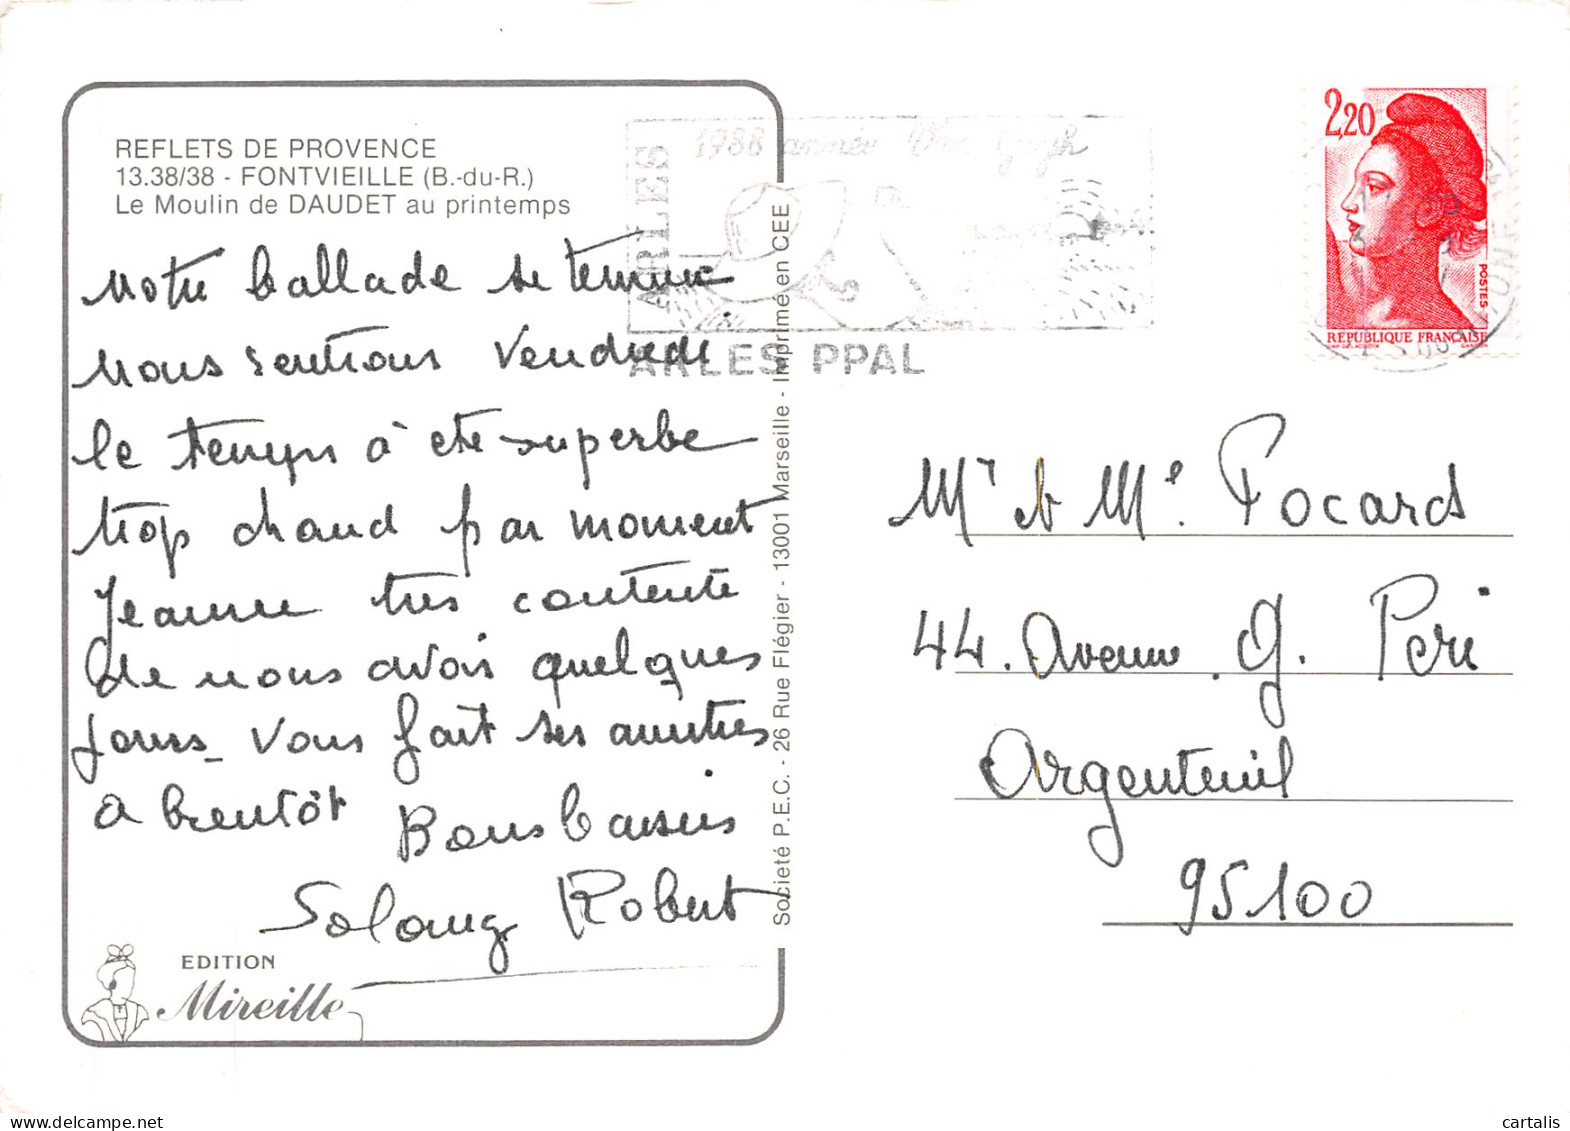 REFLETS DE PROVENCE
13.38/38 - FONTVIEILLE (B.-du-R.)
Le Moulin de DAUDET au printemps
Notre ballade se termine
nous rentrons Vendredi
le temps à ete superbe
trop chaud par moment
Jeanne tres contente
de nous avois quelques
jours_ vous fait ses amities
a bientôt Bons baisers
Solange Robert
EDITION
Mireille
Société P.E.C. - 26 Rue Flégier - 13001 Marseille - Imprimé en CEE
ARLES
1988 année Van Gogh
ARLES PPAL
2,20
POSTES
RÉPUBLIQUE FRANÇAISE
Mr & Me. Focard
44. Avenue . G. Peri
Argenteuil
95100
cartalis | delcampe.net